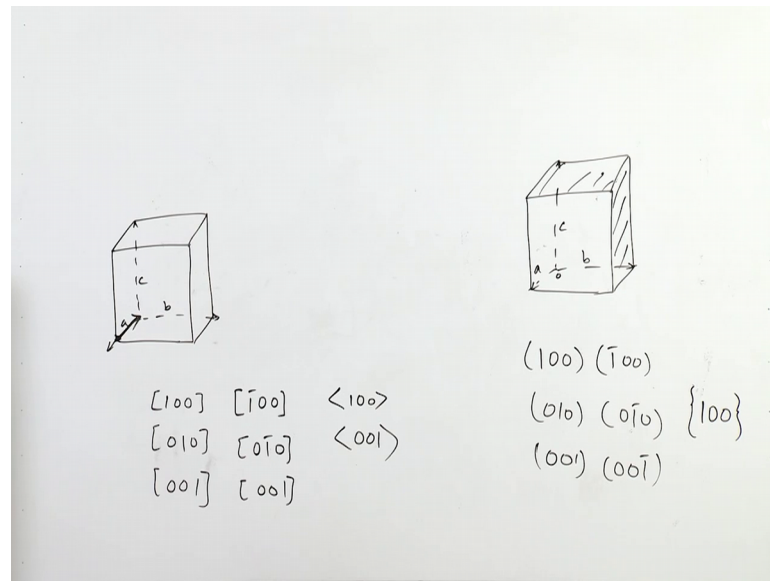 c
a
b
[100] [1̄00] <100>
[010] [01̄0] <001>
[001] [001̄]
c
a
o
b
(100) (1̄00)
(010) (01̄0) {100}
(001) (001̄)